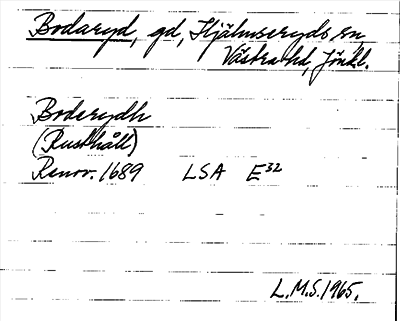 Bodaryd, gd, Hjälmseryds sn,
Västra hd, Jönkl.
Boderydh
(Rusthåll)
Renov. 1689 LSA E³²
L.M.S. 1965.